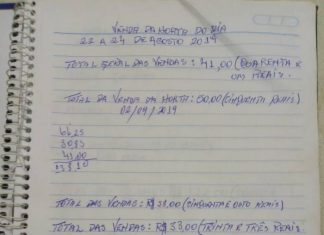 VENDA DA HORTA DO DIA
22 A 24 DE AGOSTO 2019
TOTAL GERAL DAS VENDAS: 41,00 (QUARENTA E
UM REAIS.
TOTAL DA VENDA DA HORTA: 50,00 (CINQUENTA REAIS)
02/09/2019
41,00
TOTAL DAS VENDAS: R$ 58,00 (CINQUENTA E OITO REAIS)
TOTAL DAS VENDAS: R$ 33,00 (TRINTA E TRÊS REAIS